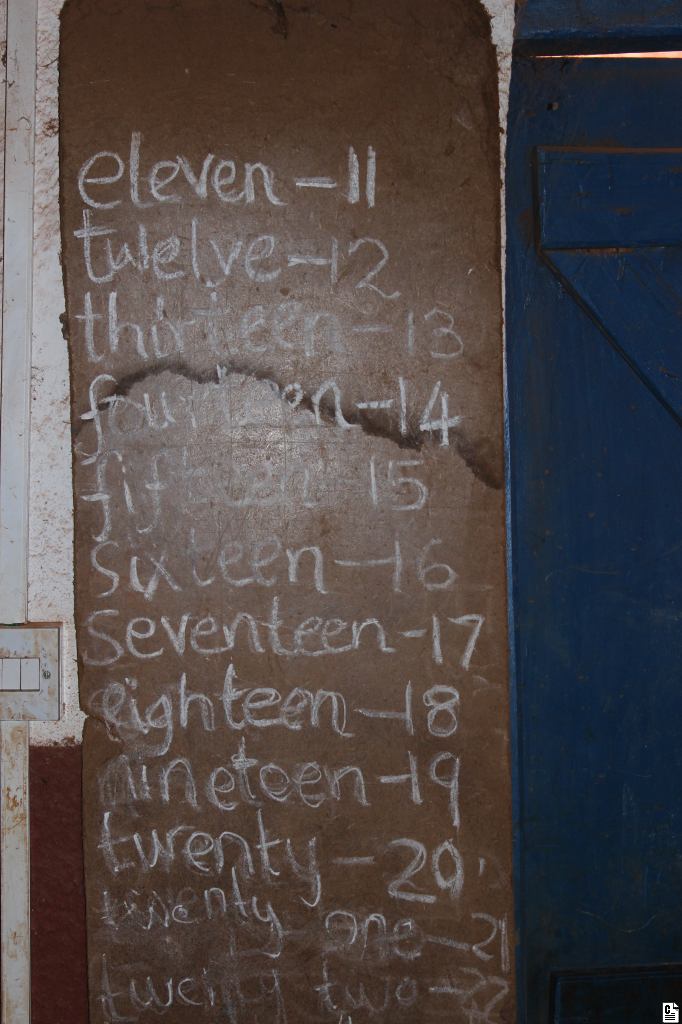 eleven - 11
twelve - 12
thirteen - 13
fourteen - 14
fifteen - 15
sixteen - 16
seventeen - 17
eighteen - 18
nineteen - 19
twenty - 20
twenty one - 21
twenty two - 22